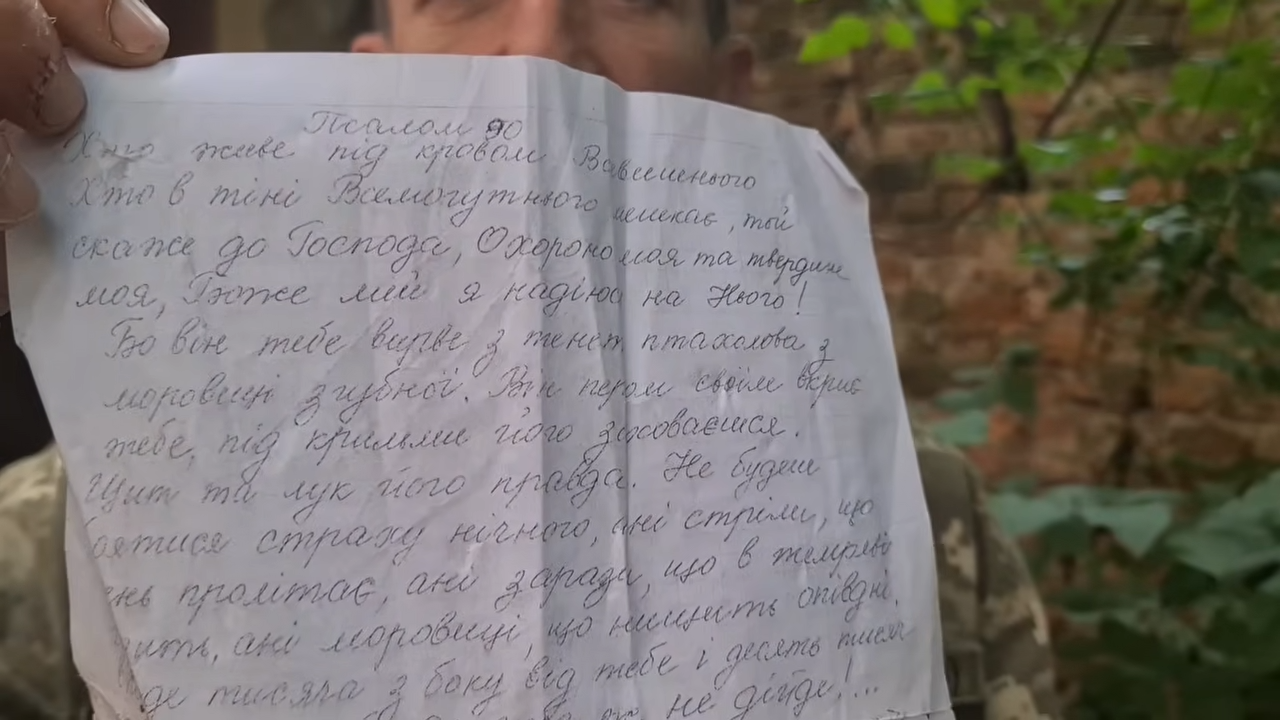 Псалом 90
Хто живе під кровом Вавишнього
Хто в тіні Всемогутнього мешкає, той
скаже до Господа, Охороно моя та твердине
моя, Боже мій я надіюсь на Нього!
Бо він тебе вирве з тенет птахолова з
моровиці згубної. Він пером своїм вкриє
тебе, під крильми його заховаєшся.
Щит та лук його правда. Не будеш
боятися страху нічного, ані стріли, що
ень пролітає, ані зарази, що в темряві
дить, ані моровиці, що нищить опівдні.
де тисяча з боку від тебе і десять тисяч
не дійде!...